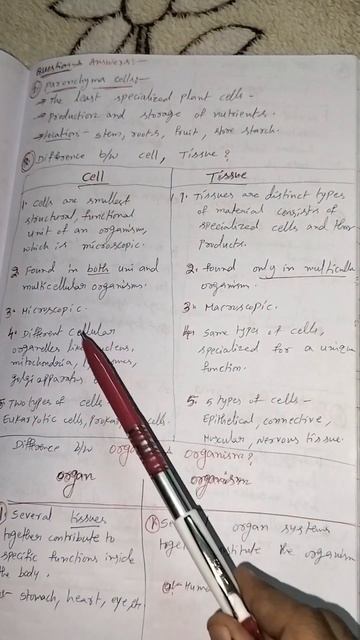 Questions Answers:-
① Parenchyma cells:-
→ The least specialized plant cells -
→ Production and storage of nutrients.
→ location - stem, roots, fruit, store starch.
② Difference b/w cell, Tissue?
Cell
1. Cells are smallest
structural, functional
unit of an organism,
which is microscopic.
2. Found in both uni and
multicellular organisms.
3. Microscopic.
4. Different cellular
organelles like nucleus,
mitochondria,
golgi apparatus.
5. Two types of cells
Eukaryotic cells, cells.
Tissue
1. Tissues are distinct types
of material consists of
specialized cells and their
products.
2. found only in multicellu
organism.
3. Macroscopic.
4. Same types of cells,
specialized for a unique
function.
5. 5 types of cells -
Epithetical, connective,
Muscular, nervous tissue.
Difference b/w organism?
organ
1) Several tissues
together contribute to
specific functions inside
the body.
stomach, heart, eye, etc
organism
organ systems
the organism
Human